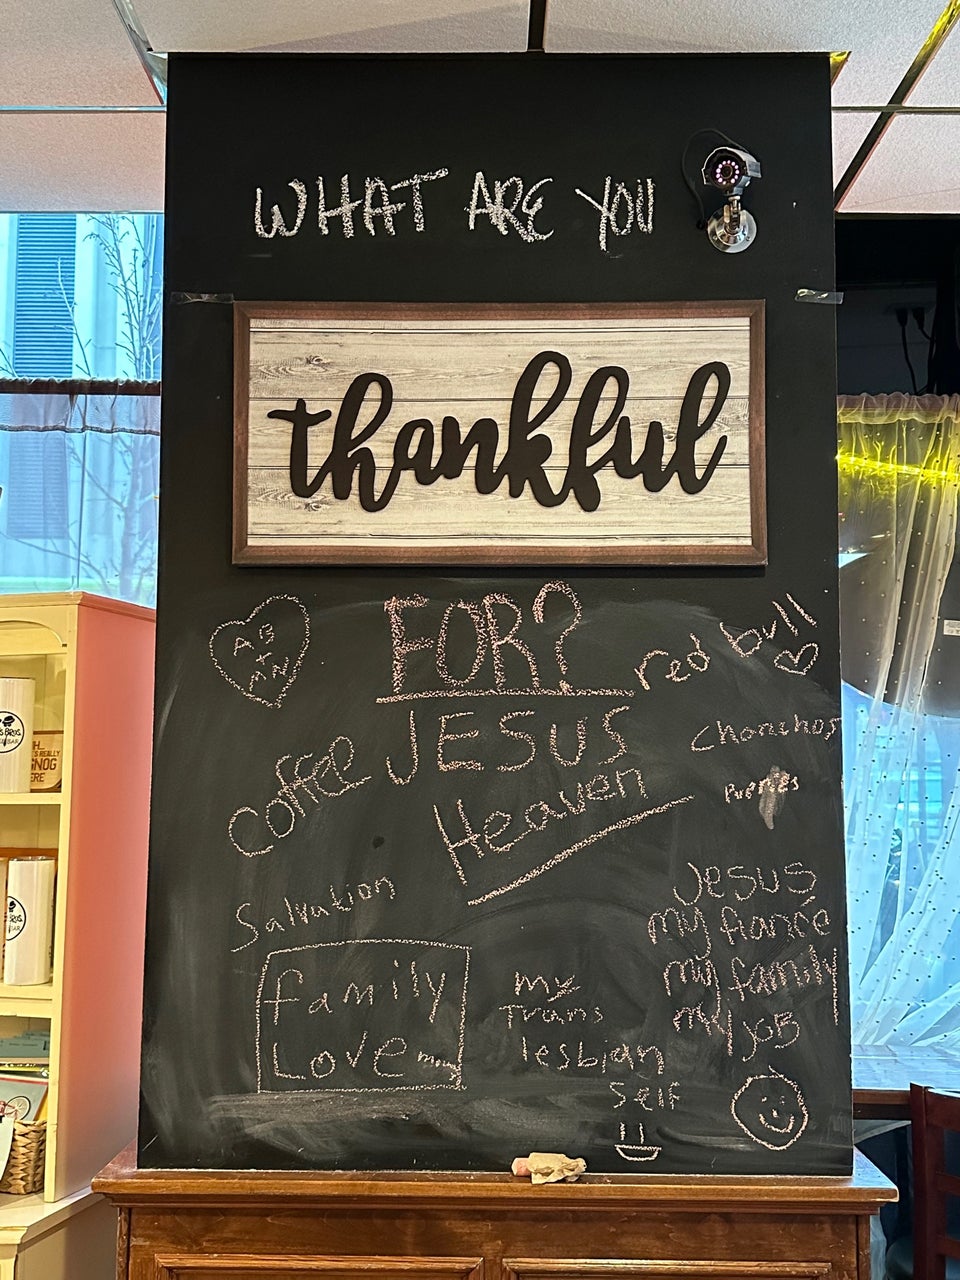 WHAT ARE YOU
thankful
FOR?
AG
+
AN
red bull
JESUS
chanchos
Coffee
Heaven
Puppies
Salvation
Jesus
my fiancé
my family
my job
family
Love
my
Trans
lesbian
self